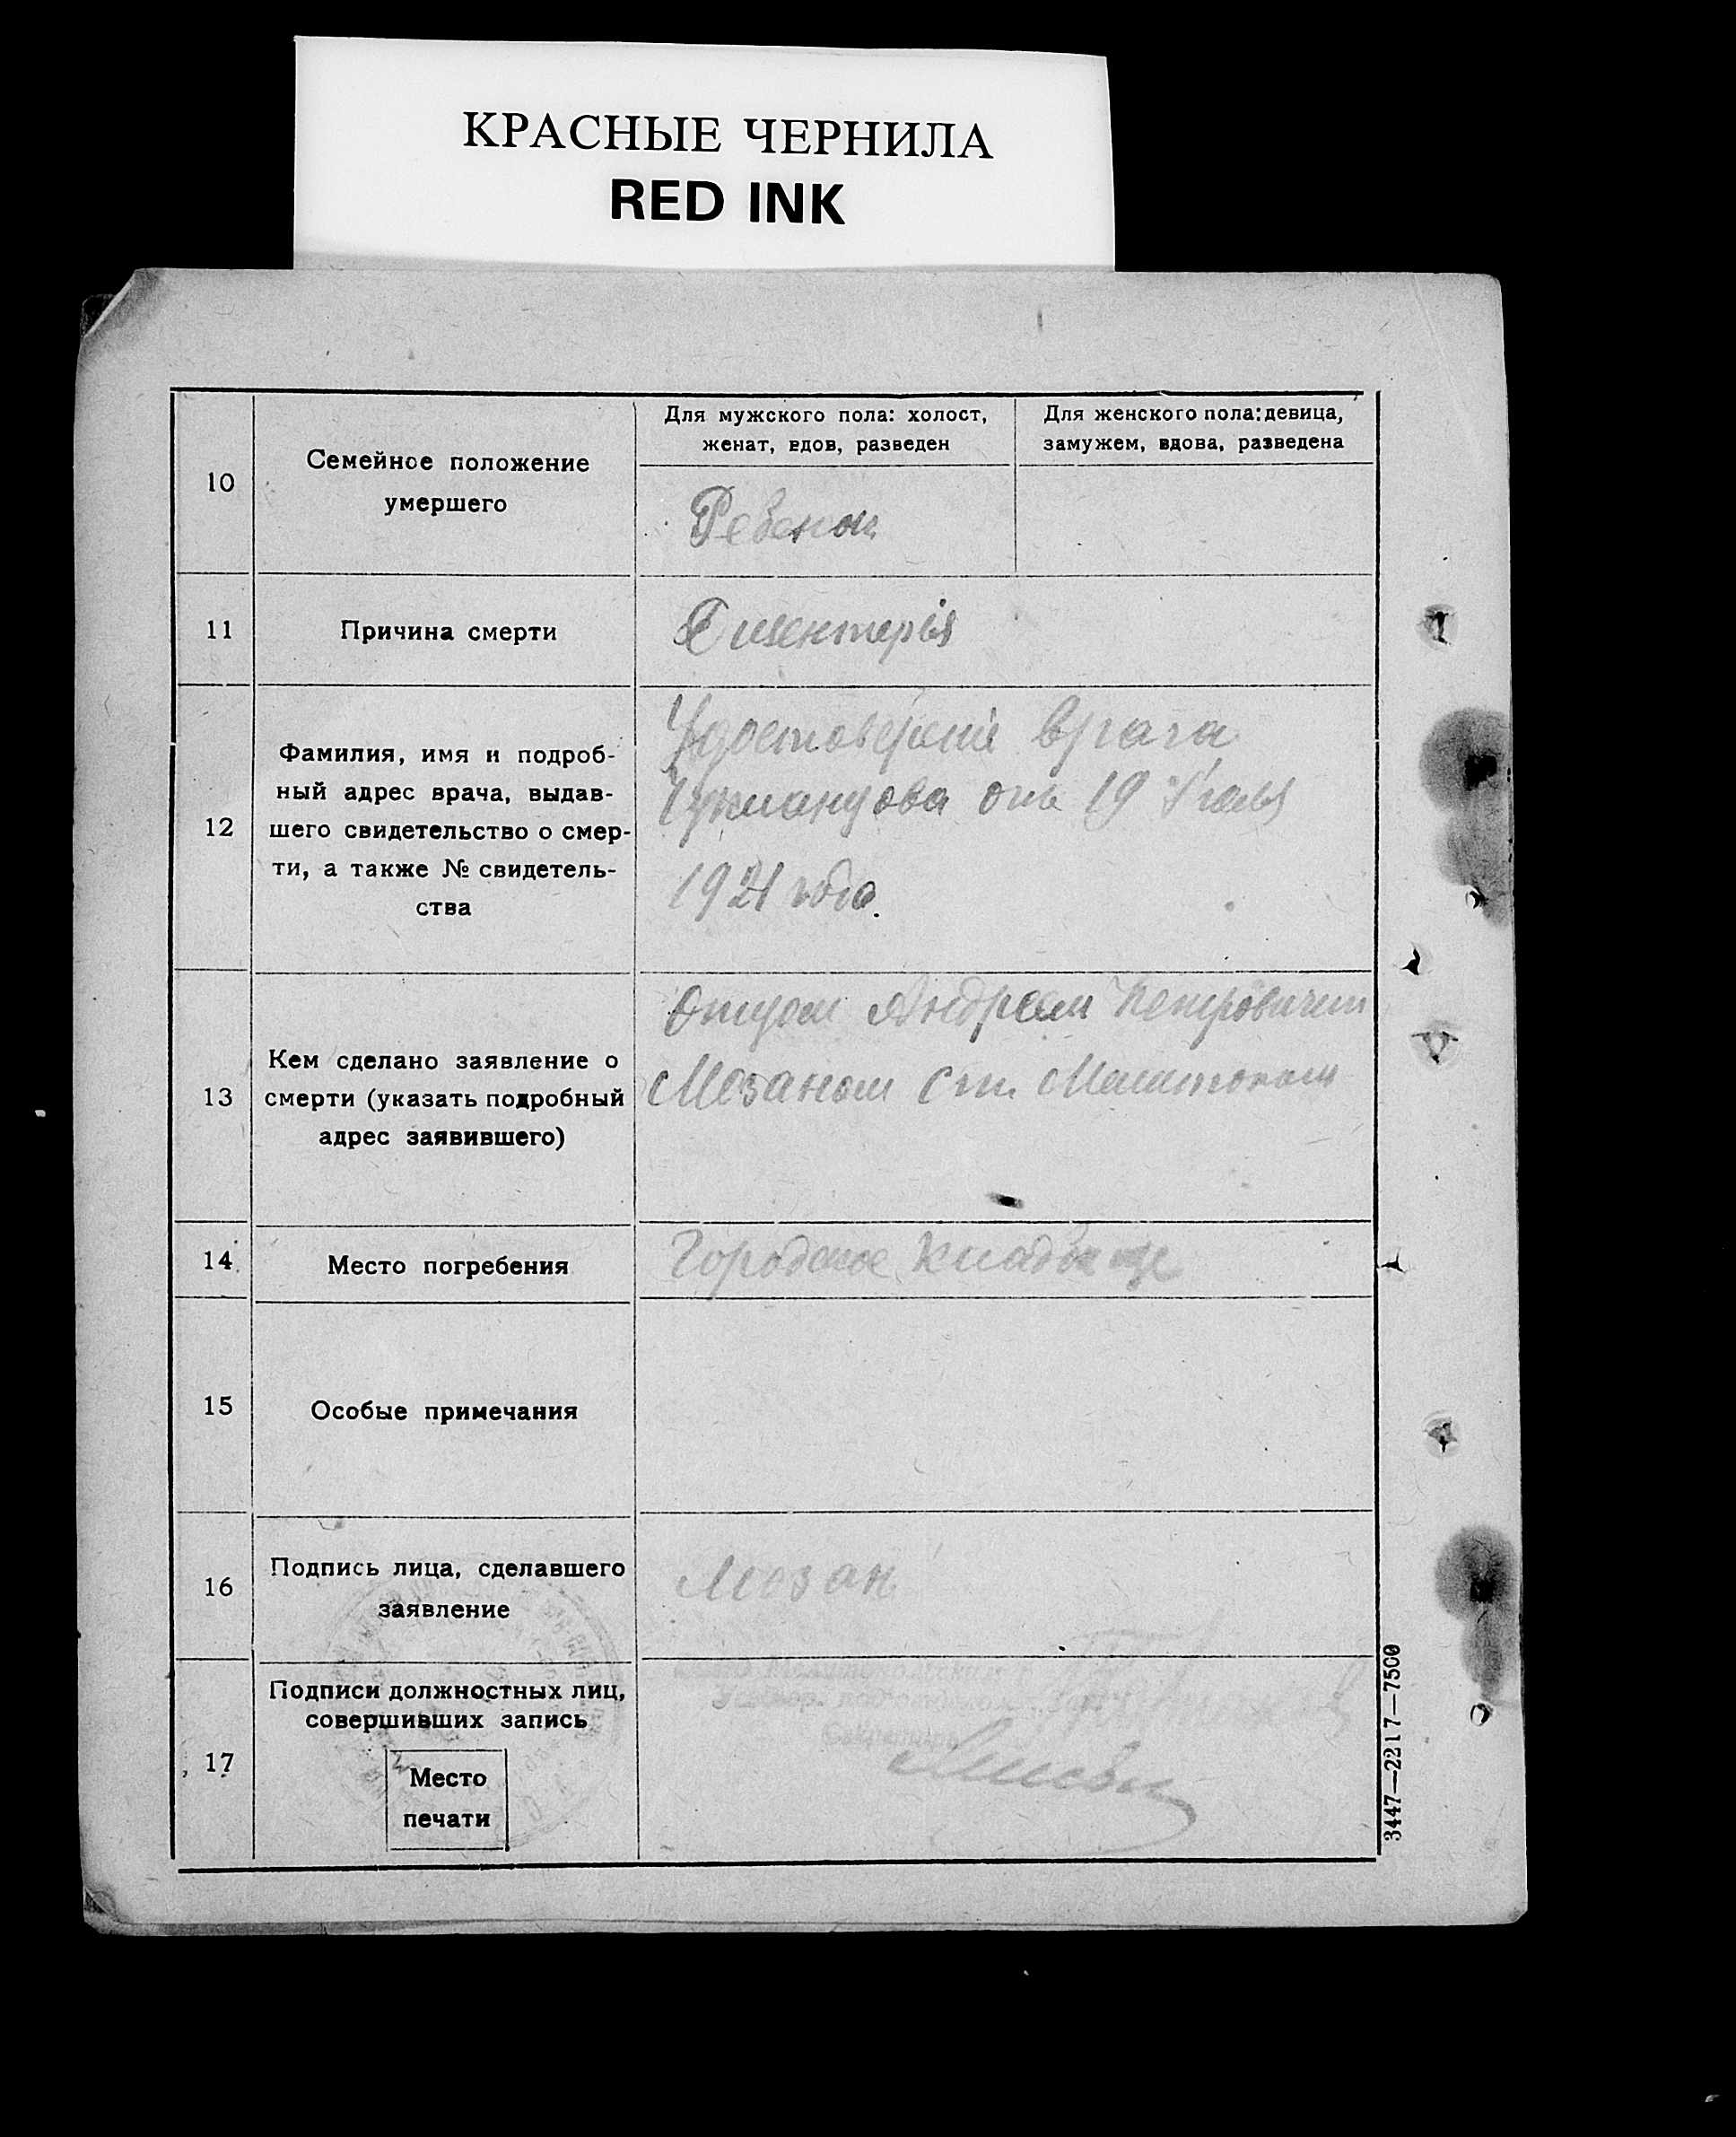 КРАСНЫЕ ЧЕРНИЛА
RED INK
10
Семейное положение
умершего
Для мужского пола: холост,
женат, вдов, разведен
Для женского пола: девица,
замужем, вдова, разведена
Ребенок
11
Причина смерти
Дизентерія
12
Фамилия, имя и подроб-
ный адрес врача, выдав-
шего свидетельство о смер-
ти, а также № свидетель-
ства
Удостоверение врача
от 19 Июля
1921 года.
13
Кем сделано заявление о
смерти (указать подробный
адрес заявившего)
Отцом Андреем Петровичем
Мозаном ст.
14
Место погребения
Городское кладбище
15
Особые примечания
16
Подпись лица, сделавшего
заявление
Мозан
17
Подписи должностных лиц,
совершивших запись
Место
печати
Секретарь
3447—2217—7500